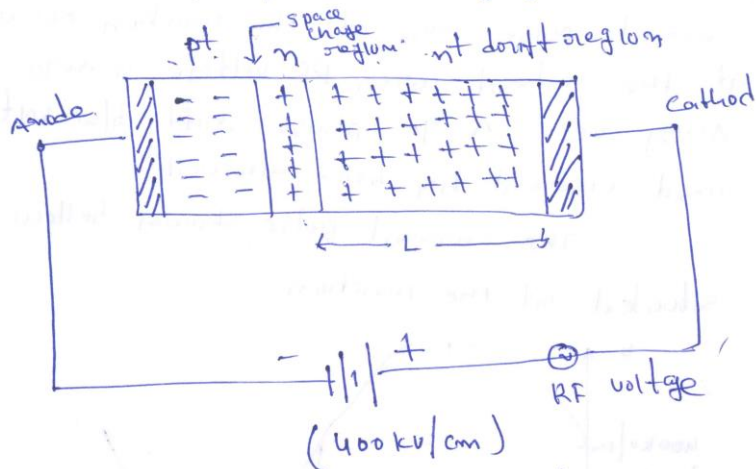 space
charge
region.
pt. n n+ drift region
- - + + + + + + +
- - + + + + + + +
- - + + + + + + +
- - + + + + + + +
- - + + + + + + +
Anode
Cathod
L
- +
RF voltage
(400kv/cm)